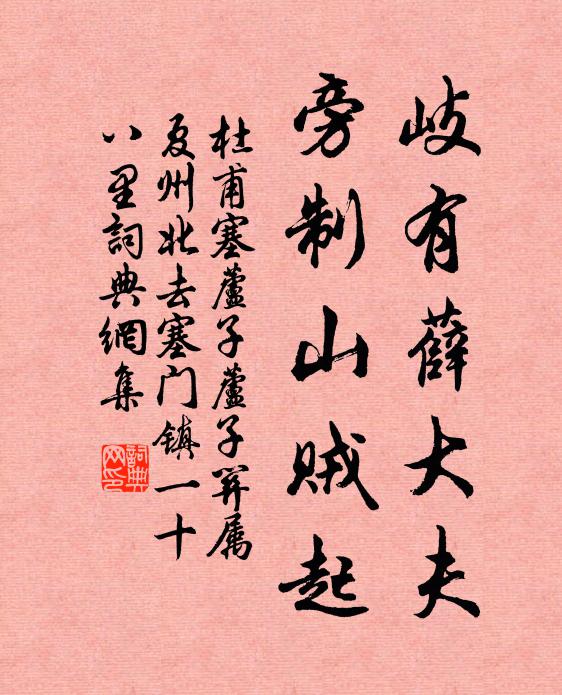 岐有薛大夫
旁制山贼起
杜甫塞蘆子蘆子関属
夏州北去塞门镇一十
八里詞典網集
詞典网印